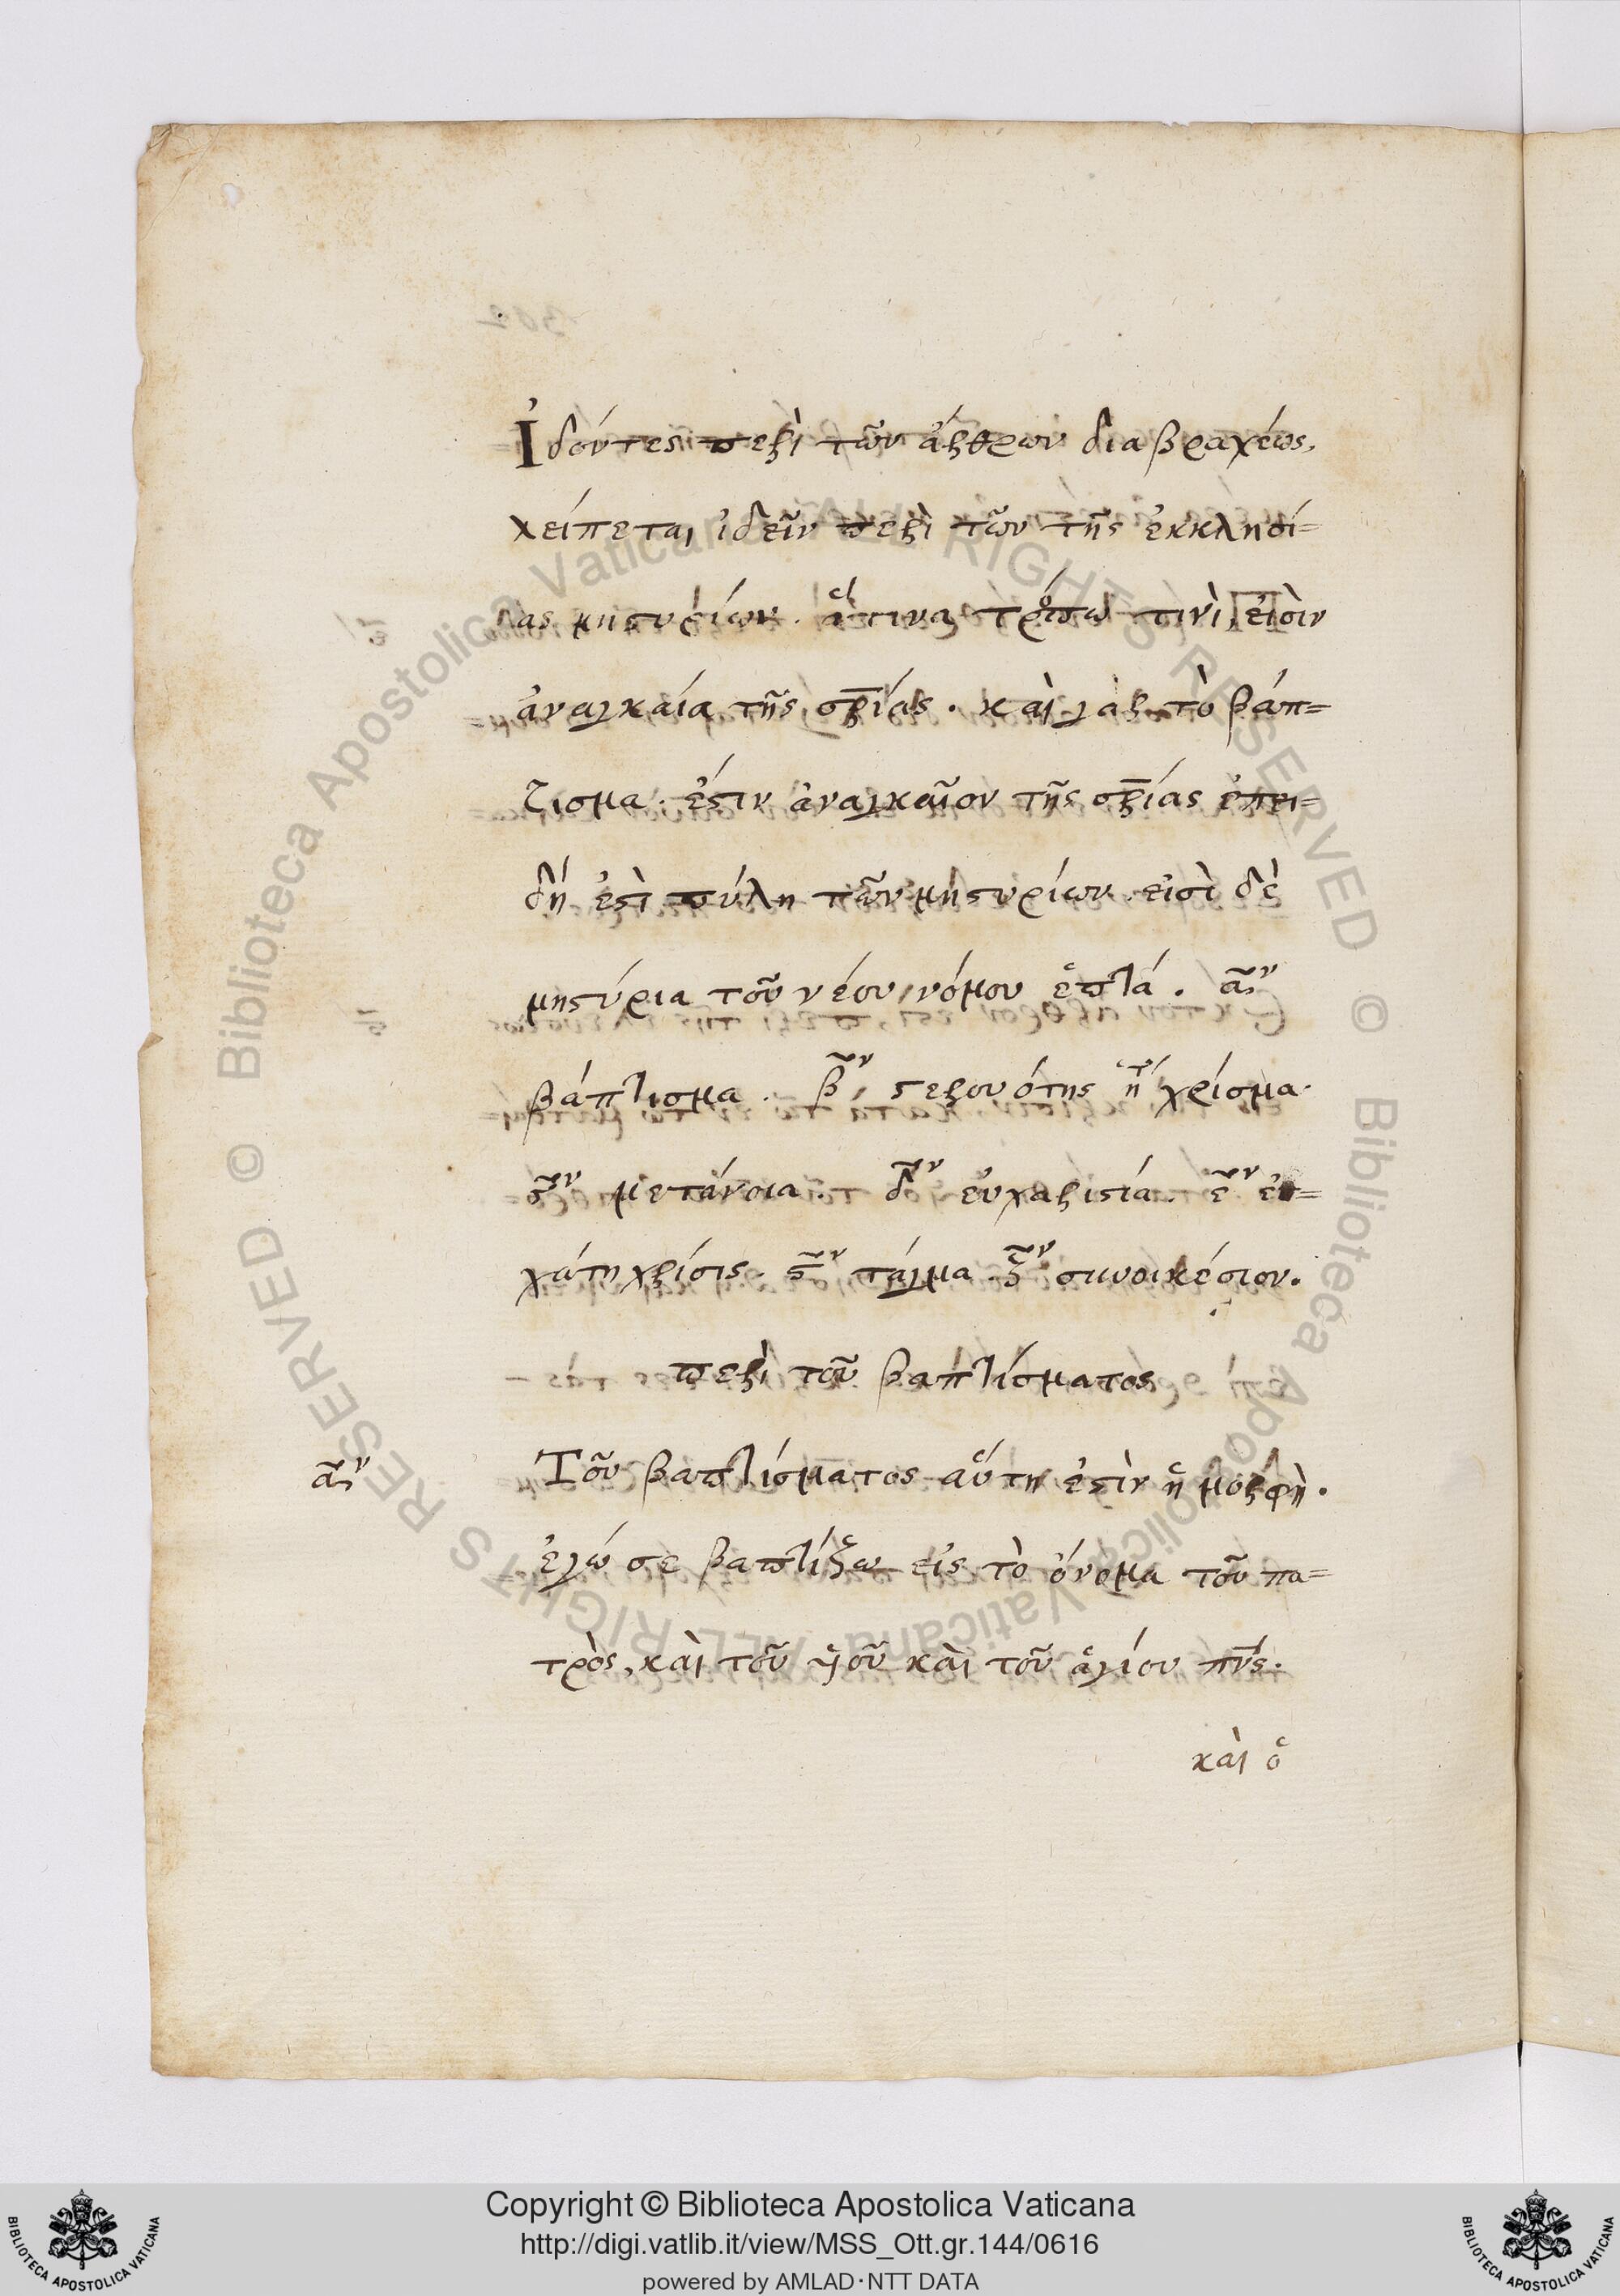 Ἰδόντες περὶ τῶν ἄρθρων διαβραχέως,
λείπεται ἰδεῖν περὶ τῶν τῆς ἐκκλησί=
ας μηστυρίων. ἅτινα τρόπω τινὶ εἰσὶν
ἀναγκαία τῆς σρίας. καὶ γὰρ τὸ βάπ=
τισμα. ἐστιν ἀναγκαῖον τῆς σρίας ἐπει=
δή ἐστὶ πύλη τῶν μηστυρίων. εἰσὶ δὲ
μηστύρια τοῦ νέου νόμου ἑπτά. αον
βάπτισμα. βον στερουότης ἢ χρίσμα.
γον μετάνοια. δον εὐχαριστία. εον ἐσ=
χάτη χρίσις. ϛον τάγμα. ζον συνοικέσιον.
περὶ τοῦ βαπτίσματος
αον Τοῦ βαπτίσματος αὕτη ἐστὶν ἡ μορφὴ.
ἐγώ σε βαπτίζω εἰς τὸ ὄνομα τοῦ πα=
τρὸς, καὶ τοῦ ὑιοῦ καὶ τοῦ ἁγίου πνς.
καὶ ὁ
Copyright © Biblioteca Apostolica Vaticana
http://digi.vatlib.it/view/MSS_Ott.gr.144/0616
powered by AMLAD·NTT DATA
BIBLIOTECA APOSTOLICA VATICANA
BIBLIOTECA APOSTOLICA VATICANA
© Biblioteca Apostolica Vaticana ALL RIGHTS RESERVED
© Biblioteca Apostolica Vaticana ALL RIGHTS RESERVED